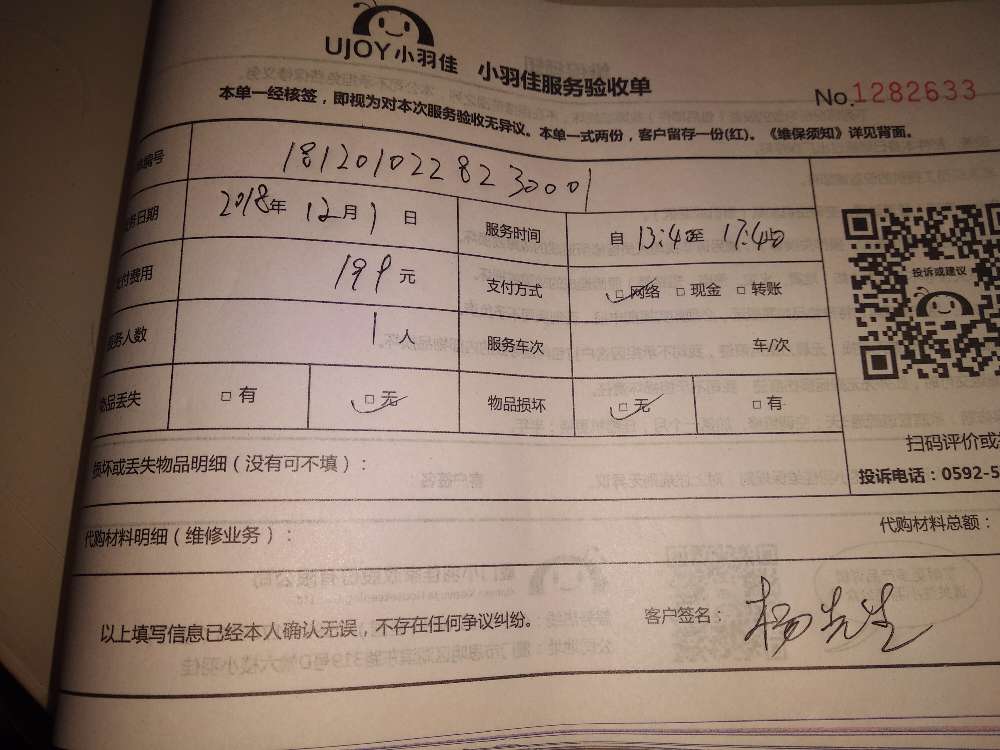 UJOY小羽佳 小羽佳服务验收单
No.1282633
本单一经核签，即视为对本次服务验收无异议。本单一式两份，客户留存一份(红)。《维保须知》详见背面。
编号 1812010228230001
务日期 2018年 12月 1 日 服务时间 自 13:40至 17:40
支付费用 199 元 支付方式 □ 网络 □ 现金 □ 转账
服务人数 1 人 服务车次 车/次
物品丢失 □ 有 □ 无 物品损坏 □ 无 □ 有
投诉或建议
扫码评价或
投诉电话：0592-5
损坏或丢失物品明细（没有可不填）：
代购材料明细（维修业务）： 代购材料总额：
以上填写信息已经本人确认无误，不存在任何争议纠纷。 客户签名： 杨先生